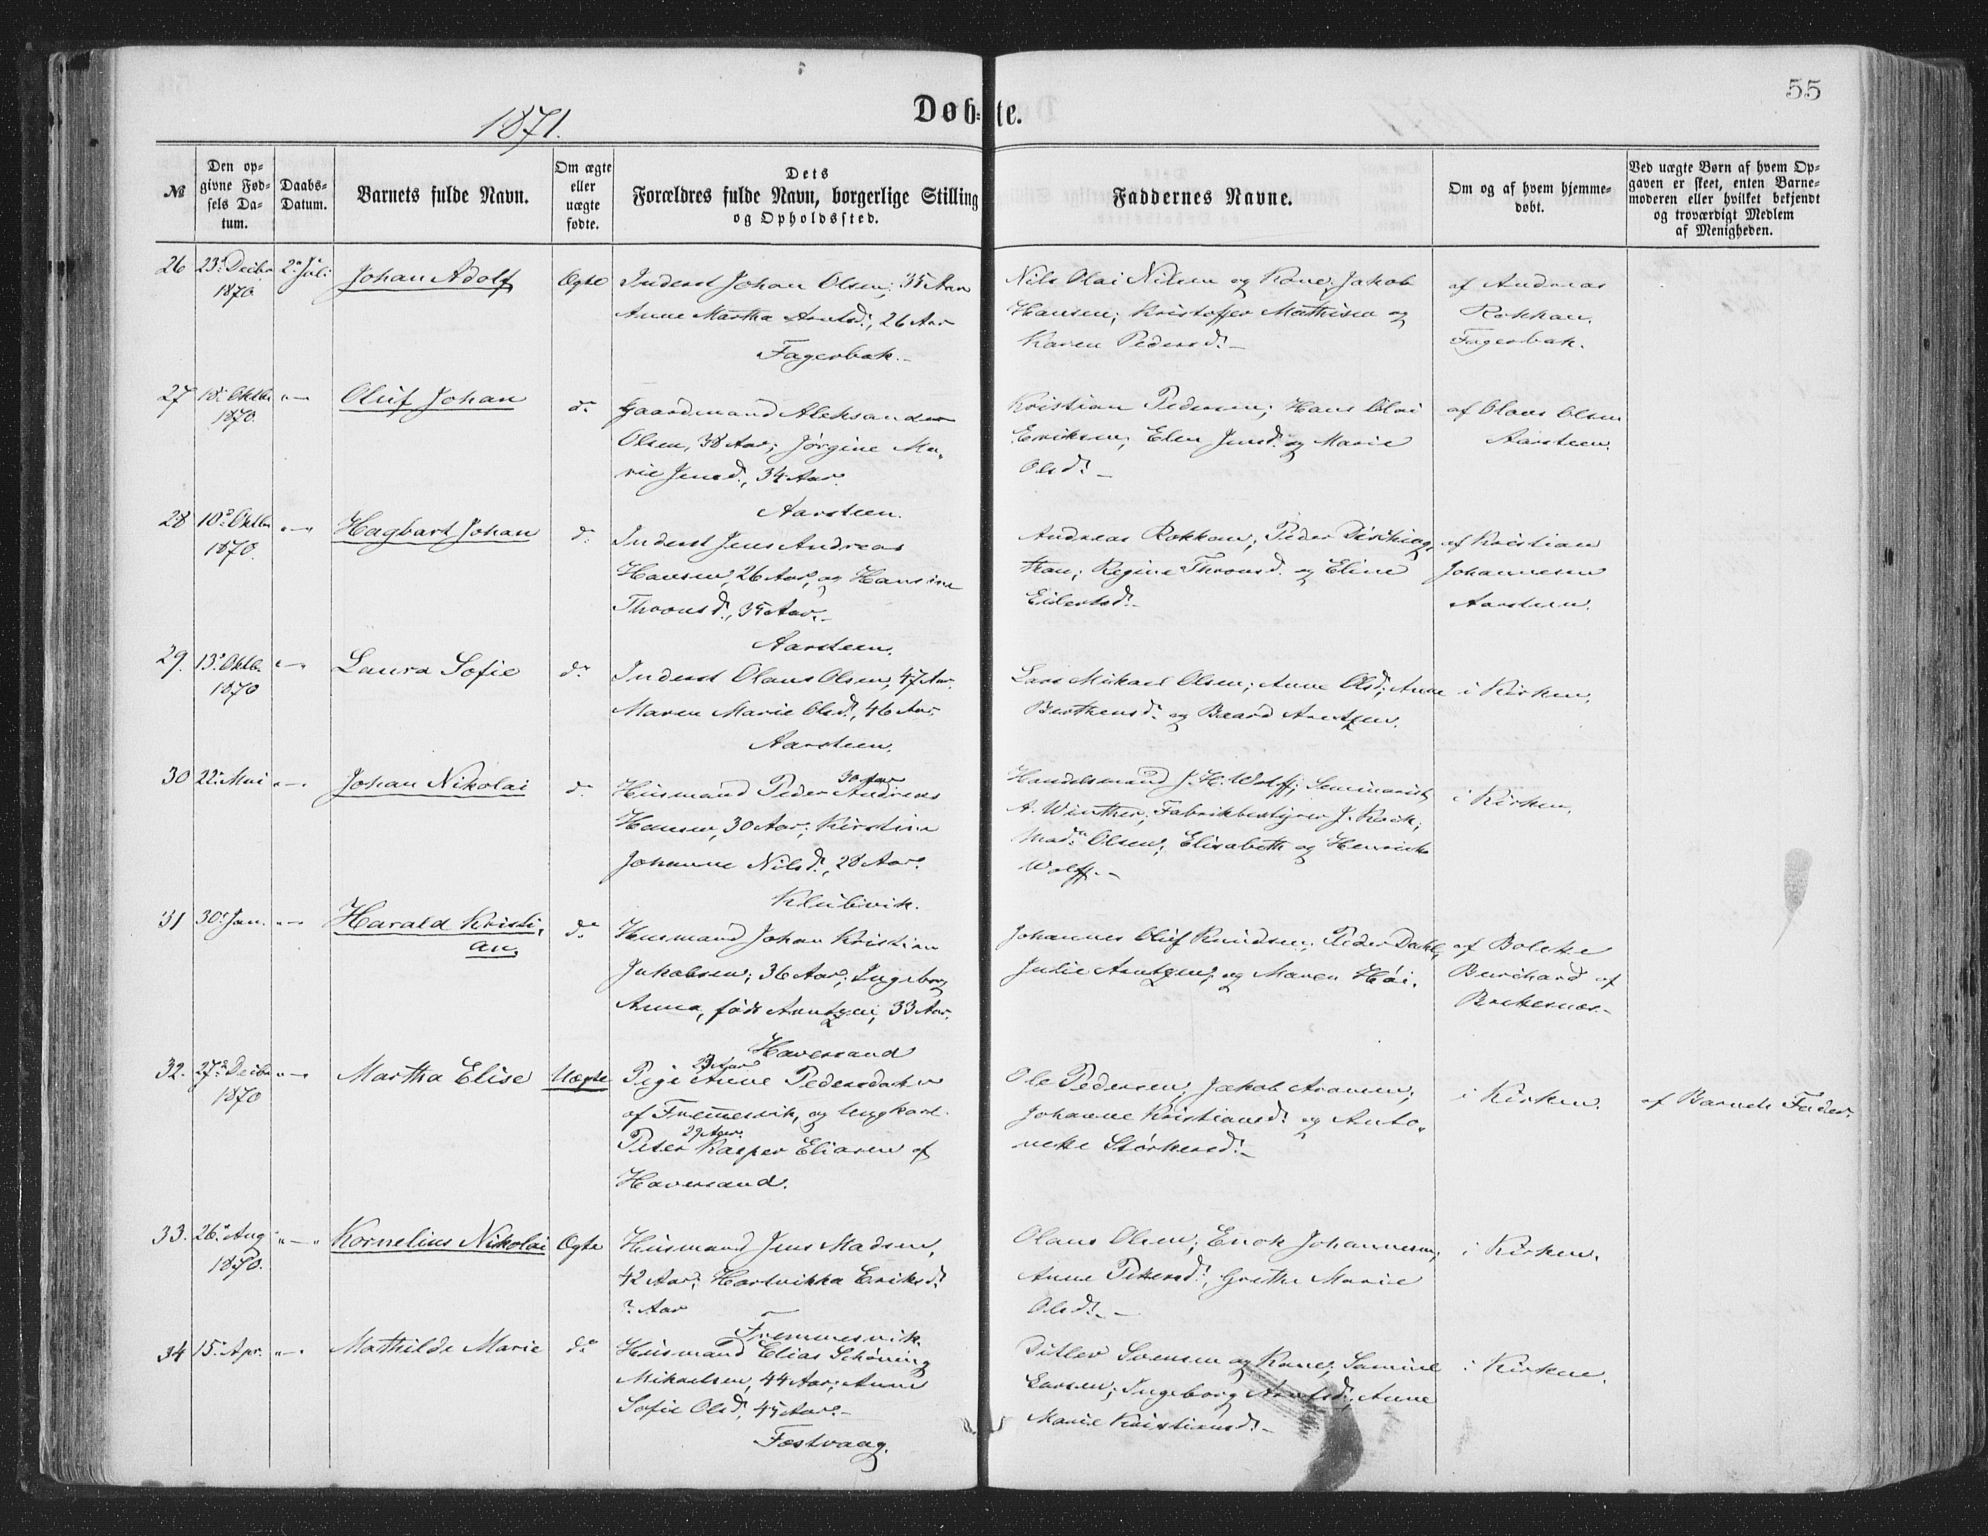 55
1871.
Døbte.
№
Den opgivne Fødsels Datum.
Daabs-Datum.
Barnets fulde Navn.
Om ægte eller uægte fødte.
Dets Forældres fulde Navn, borgerlige Stilling og Opholdssted.
Faddernes Navne.
Om og af hvem hjemmedøbt.
Ved uægte Børn af hvem Opgaven er skeet, enten Barnemoderen eller hvilket bekjendt og troværdigt Medlem af Menigheden.
26 23de Decbr 1870 2den Juli Johan Adolf Ægte
Inderst Johan Olsen, 35 Aar
Anne Martha Arntsd., 26 Aar
Fagerbak.
Nils Olai Nilsen og Kone; Jakob
Hansen; Kristoffer Mathisen og
Karen Pedersd. –
af Andreas
Rokkan.
Fagerbak.
27 18. Oktbr 1870. "–" Oluf Johan do
Gaardmand Aleksander
Olsen, 38 Aar; Jørgine Ma-
rie Jensd., 34 Aar.
Aarsteen.
Kristian Pedersen; Hans Olai
Eriksen; Elen Jensd. og Marie
Olsd. –
af Olaus Olsen
Aarsteen.
28 10. Oktbr 1870. "–" Hagbart Johan do
Inderst Jens Andreas
Hansen, 26 Aar, og Hansine
Thronsd., 35 Aar.
Aarsteen.
Andreas Rokkan; Peder
Regine Thronsd. og Eline
Eilertsd. –
af Kristian
Johannesen
Aarsteen.
29. 13. Oktbr. 1870 "–" Laura Sofie do
Inderst Olaus Olsen, 47 Aar.
Maren Marie Olsd., 46 Aar,
Aarsteen.
Lars Mikael Olsen; Anne Olsd; Anne
Berthensd. og Baard Arntzen.
i Kirken.
30 22. Mai "–" Johan Nikolai do
30 Aar
Husmand Peder Andreas
Hansen, 30 Aar; Kirstine
Johanne Nilsd., 28 Aar.
Klubvik.
Handelsmand J. H. Wolff; Seminarist
A. Winther; Fabrikbestyrer J. Koch;
Mad. Olsen; Elisabeth og Henrik
Wolff. –
i Kirken.
31 30. Jan. "–" Harald Kristi-
an. do
Husmand Johan Kristian
Jakobsen; 36 Aar; Ingeborg
Anna, født Arntzen, 33 Aar.
Haversand
Johannes Oluf Knudsen; Peder Dahl,
Julie Arntzen; og Maren Høi.
af Bolette
Burchard af
32. 27. Decbr 1870 "–" Martha Elise Uægte
Pige Anne Pedersdatter
af Fremmesvik, og Ungkarl
29 Aar.
Peter Kasper Eliasen af
Haversand.
Ole Pedersen; Jakob Aronsen;
Johanne Kristiansd. og Anto-
nette Størkersd. –
i Kirken.
af Barnets Fader.
33. 26. Aug 1870. "–" Kornelius Nikolai Ægte
Husmand Jens Madsen,
42 Aar; Hartvikka Eriksd.
? Aar
Fremmesvik.
Olaus Olsen; Enok Johannesen;
Anne Petersd.; Grethe Marie
Olsd. –
i Kirken.
34 15. Apr. "–" Mathilde Marie do
Husmand Elias Schøning
Mikaelsen, 44 Aar; Anne
Sofie Olsd., 45 Aar. –
Fæstvaag.
Ditlev Svensen og Kone; Samine
Larsen; Ingeborg Arntsd.; Anne
Marie Kristiansd. –
i Kirken.